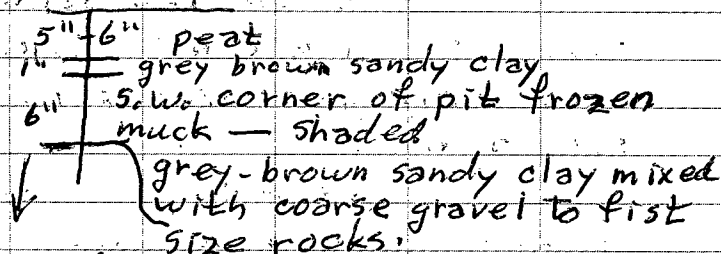 5"-6" peat
1" grey brown sandy clay
6" S.W. corner of pit frozen
muck — shaded
grey-brown sandy clay mixed
with coarse gravel to fist
size rocks.